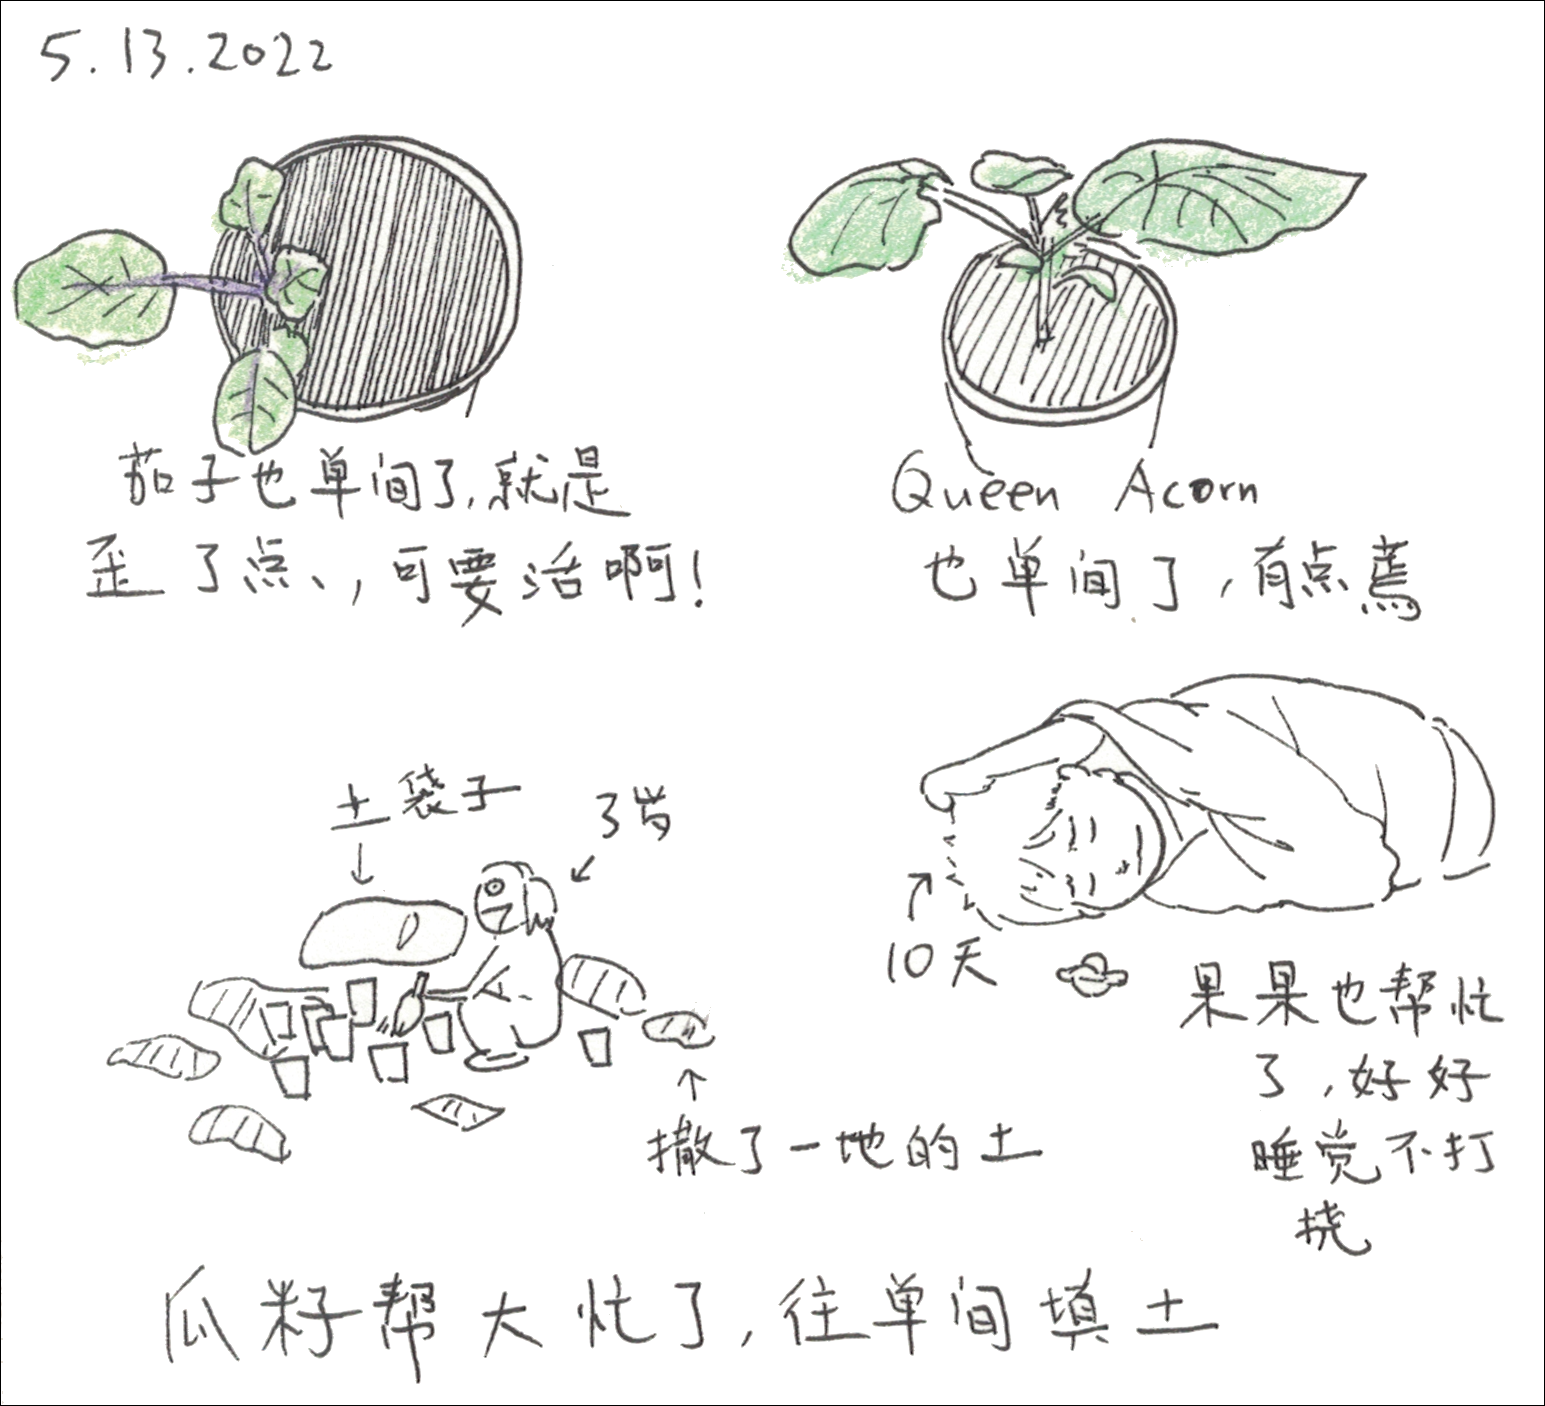 5.13.2022
茄子也单间了,就是
歪了点,可要活啊!
Queen Acorn
也单间了,有点蔫
土袋子
3岁
10天
撒了一地的土
果果也帮忙
了,好好
睡觉不打
挠
瓜籽帮大忙了,往单间填土